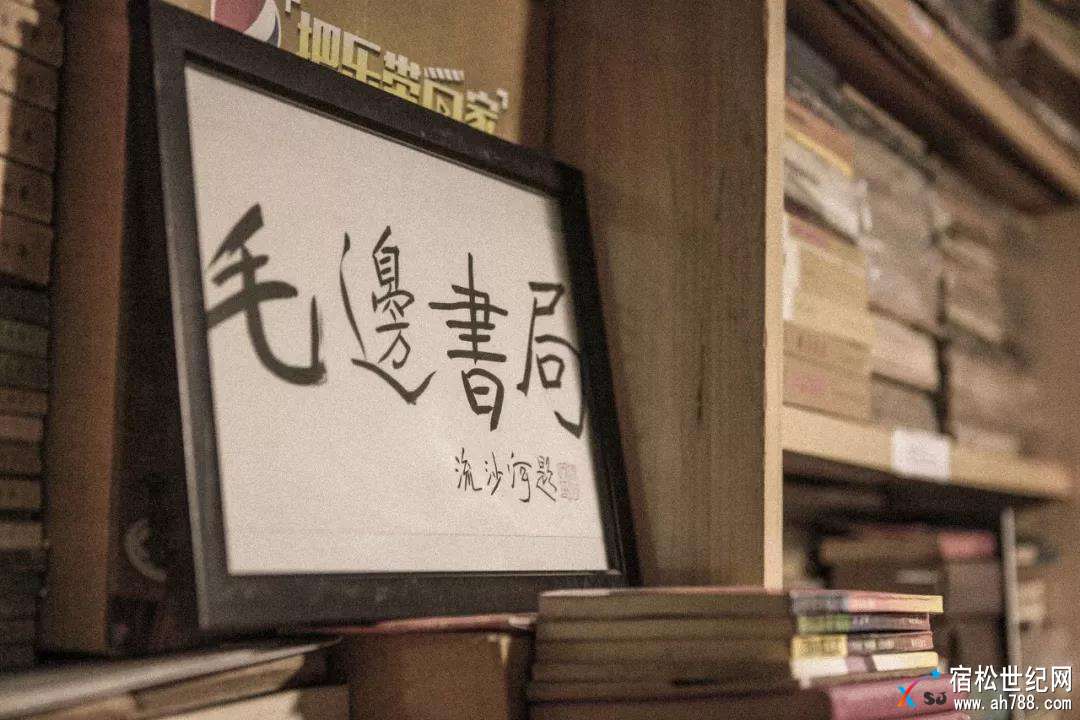 "把乐带回家"
毛邊書局
流沙河題
宿松世纪网
XSJ
www.ah788.com